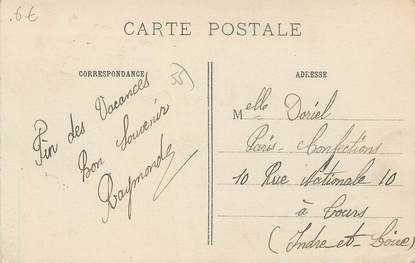 6€
CARTE POSTALE
CORRESPONDANCE
55
ADRESSE
Fin des Vacances
Bon Souvenir
Raymonde
Melle Doriel
Paris-Confections
10 Rue Nationale 10
à Tours
(Indre-et-Loire)